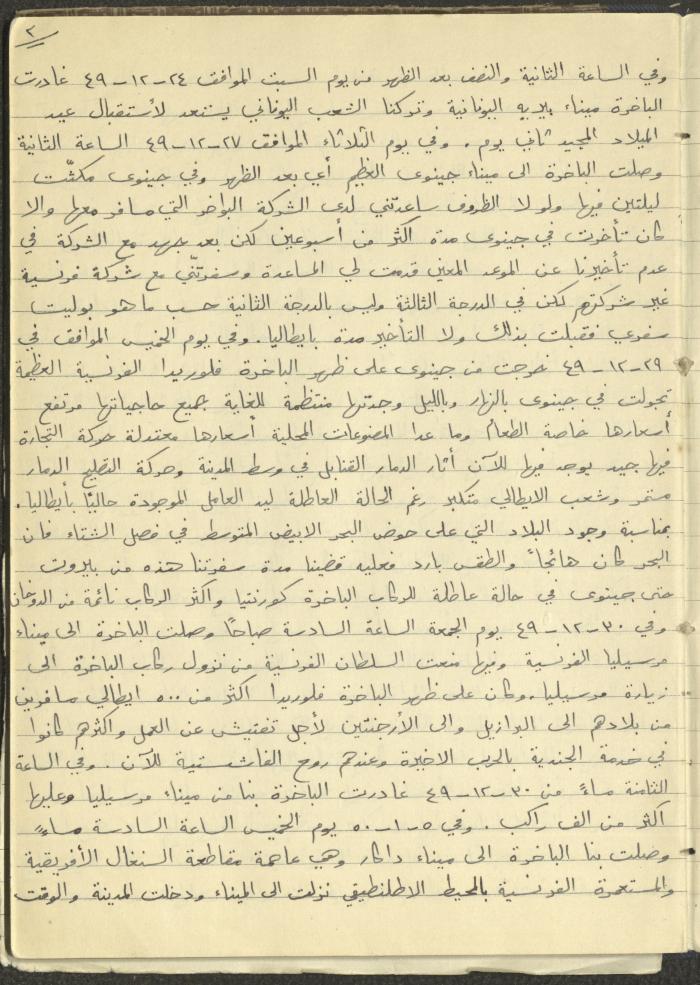 ٢
وفي الساعة الثانية والنصف بعد الظهر من يوم السبت الموافق ٢٤-١٢-٤٩ غادرت
الباخرة ميناء بيريه اليونانية وتركنا الشعب اليوناني يستعد لأستقبال عيد
الميلاد المجيد ثاني يوم. وفي يوم الثلاثاء الموافق ٢٧-١٢-٤٩ الساعة الثانية
وصلت الباخرة الى ميناء جينوى العظيم أي بعد الظهر وفي جينوى مكثّت
ليلتين فيها ولولا الظروف ساعدتني لدى الشركة البواخر التي مسافر معها والا
كان تأخرت في جينوى مدة اكثر من أسبوعين لكن بعد جهد مع الشركة في
عدم تأخيرنا عن الموعد المعين قدمت لي المساعدة وسفرتنّي مع شركة فرنسية
غير شركتهم لكن في الدرجة الثالثة وليس بالدرجة الثانية حسب ما هو بوليت
سفري فقبلت بذلك ولا التأخير مدة بايطاليا. وفي يوم الخميس الموافق في
٢٩-١٢-٤٩ خرجت من جينوى على ظهر الباخرة فلوريدا الفرنسية العظيمة
تجولت في جينوى بالنهار وبالليل وجدتها منتظمة للغاية جميع حاجياتها مرتفع
أسعارها خاصة الطعام وما عدا المصنوعات المحلية أسعارها معتدلة حركة التجارة
فيها جيد يوجد فيها للآن أثار الدمار القنابل في وسط المدينة وحركة التصليح الدمار
مستمر وشعب الايطالي متكبر رغم الحالة العاطلة ليد العامل الموجودة حاليًا بأيطاليا.
بمناسبة وجود البلاد التي على حوض البحر الابيض المتوسط في فصل الشتاء فان
البحر كان هائجاً والطقس بارد فعليه قضينا مدة سفرتنا هذه من بيروت
حتى جينوى في حالة عاطلة للركاب الباخرة كورنتيا واكثر الركاب نائمة من الدوخان
وفي ٣٠-١٢-٤٩ يوم الجمعة الساعة السادسة صباحًا وصلت الباخرة الى ميناء
مرسيليا الفرنسية وفيها منعت السلطان الفرنسية من نزول ركاب الباخرة الى
زيارة مرسيليا. وكان على ظهر الباخرة فلوريدا اكثر من ٥٠٠ ايطالي مسافرين
من بلادهم الى البرازيل والى الأرجنتين لأجل تفتيش عن العمل واكثرهم كانوا
في خدمة الجندية بالحرب الاخيرة وعندهم روح الفاشستية للآن. وفي الساعة
الثامنة مساءً من ٣٠-١٢-٤٩ غادرت الباخرة بنا من ميناء مرسيليا وعليها
اكثر من الف راكب. وفي ٥-١-٥٠ يوم الخميس الساعة السادسة مساءً
وصلت بنا الباخرة الى ميناء داكار وهي عاصمة مقاطعة السنغال الأفريقية
والمستعمرة الفرنسية بالمحيط الاطلنطيقي نزلت الى الميناء ودخلت المدينة والوقت